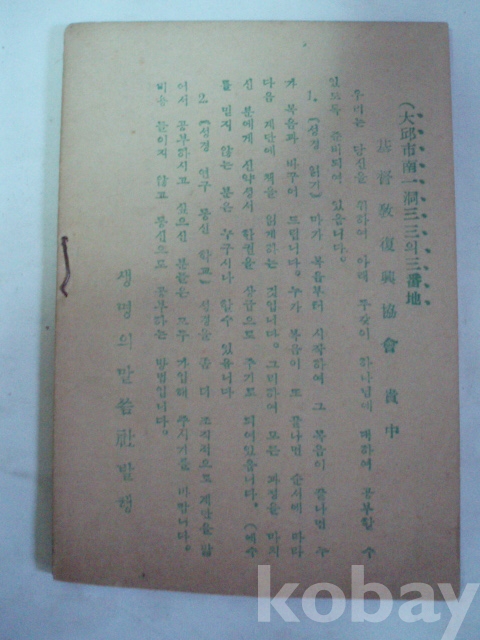 (大邱市南一洞三三의三番地
基督敎復興協會 貴中
우리는 당신을 위하여 아래 두갖이 하나님께 대하여 공부할 수
있도록 준비되여 있읍니다.
1. 《성경 읽기》 마가 복음부터 시작하여 그 복음이 끝나면 누
가 복음과 바꾸어 드립니다. 누가 복음이 또 끝나면 순서에 따라
다음 계단에 책을 읽게하는 것입니다. 그리하여 모든 과정을 마치
신 분에게 신약성서 한권을 상급으로 주기로 되여있읍니다. (예수
를 믿지 않는 분은 누구시나 할수 있읍니다
2. 《성경 연구 통신 학교》 성경을 좀 더 조직적으로 계단을 밟
어서 공부하시고 싶으신 분들은 모두 가입해 주시기를 바랍니다.
비용 들이지 않고 통신으로 공부하는 방법입니다。
생명의말씀社발행
kobay